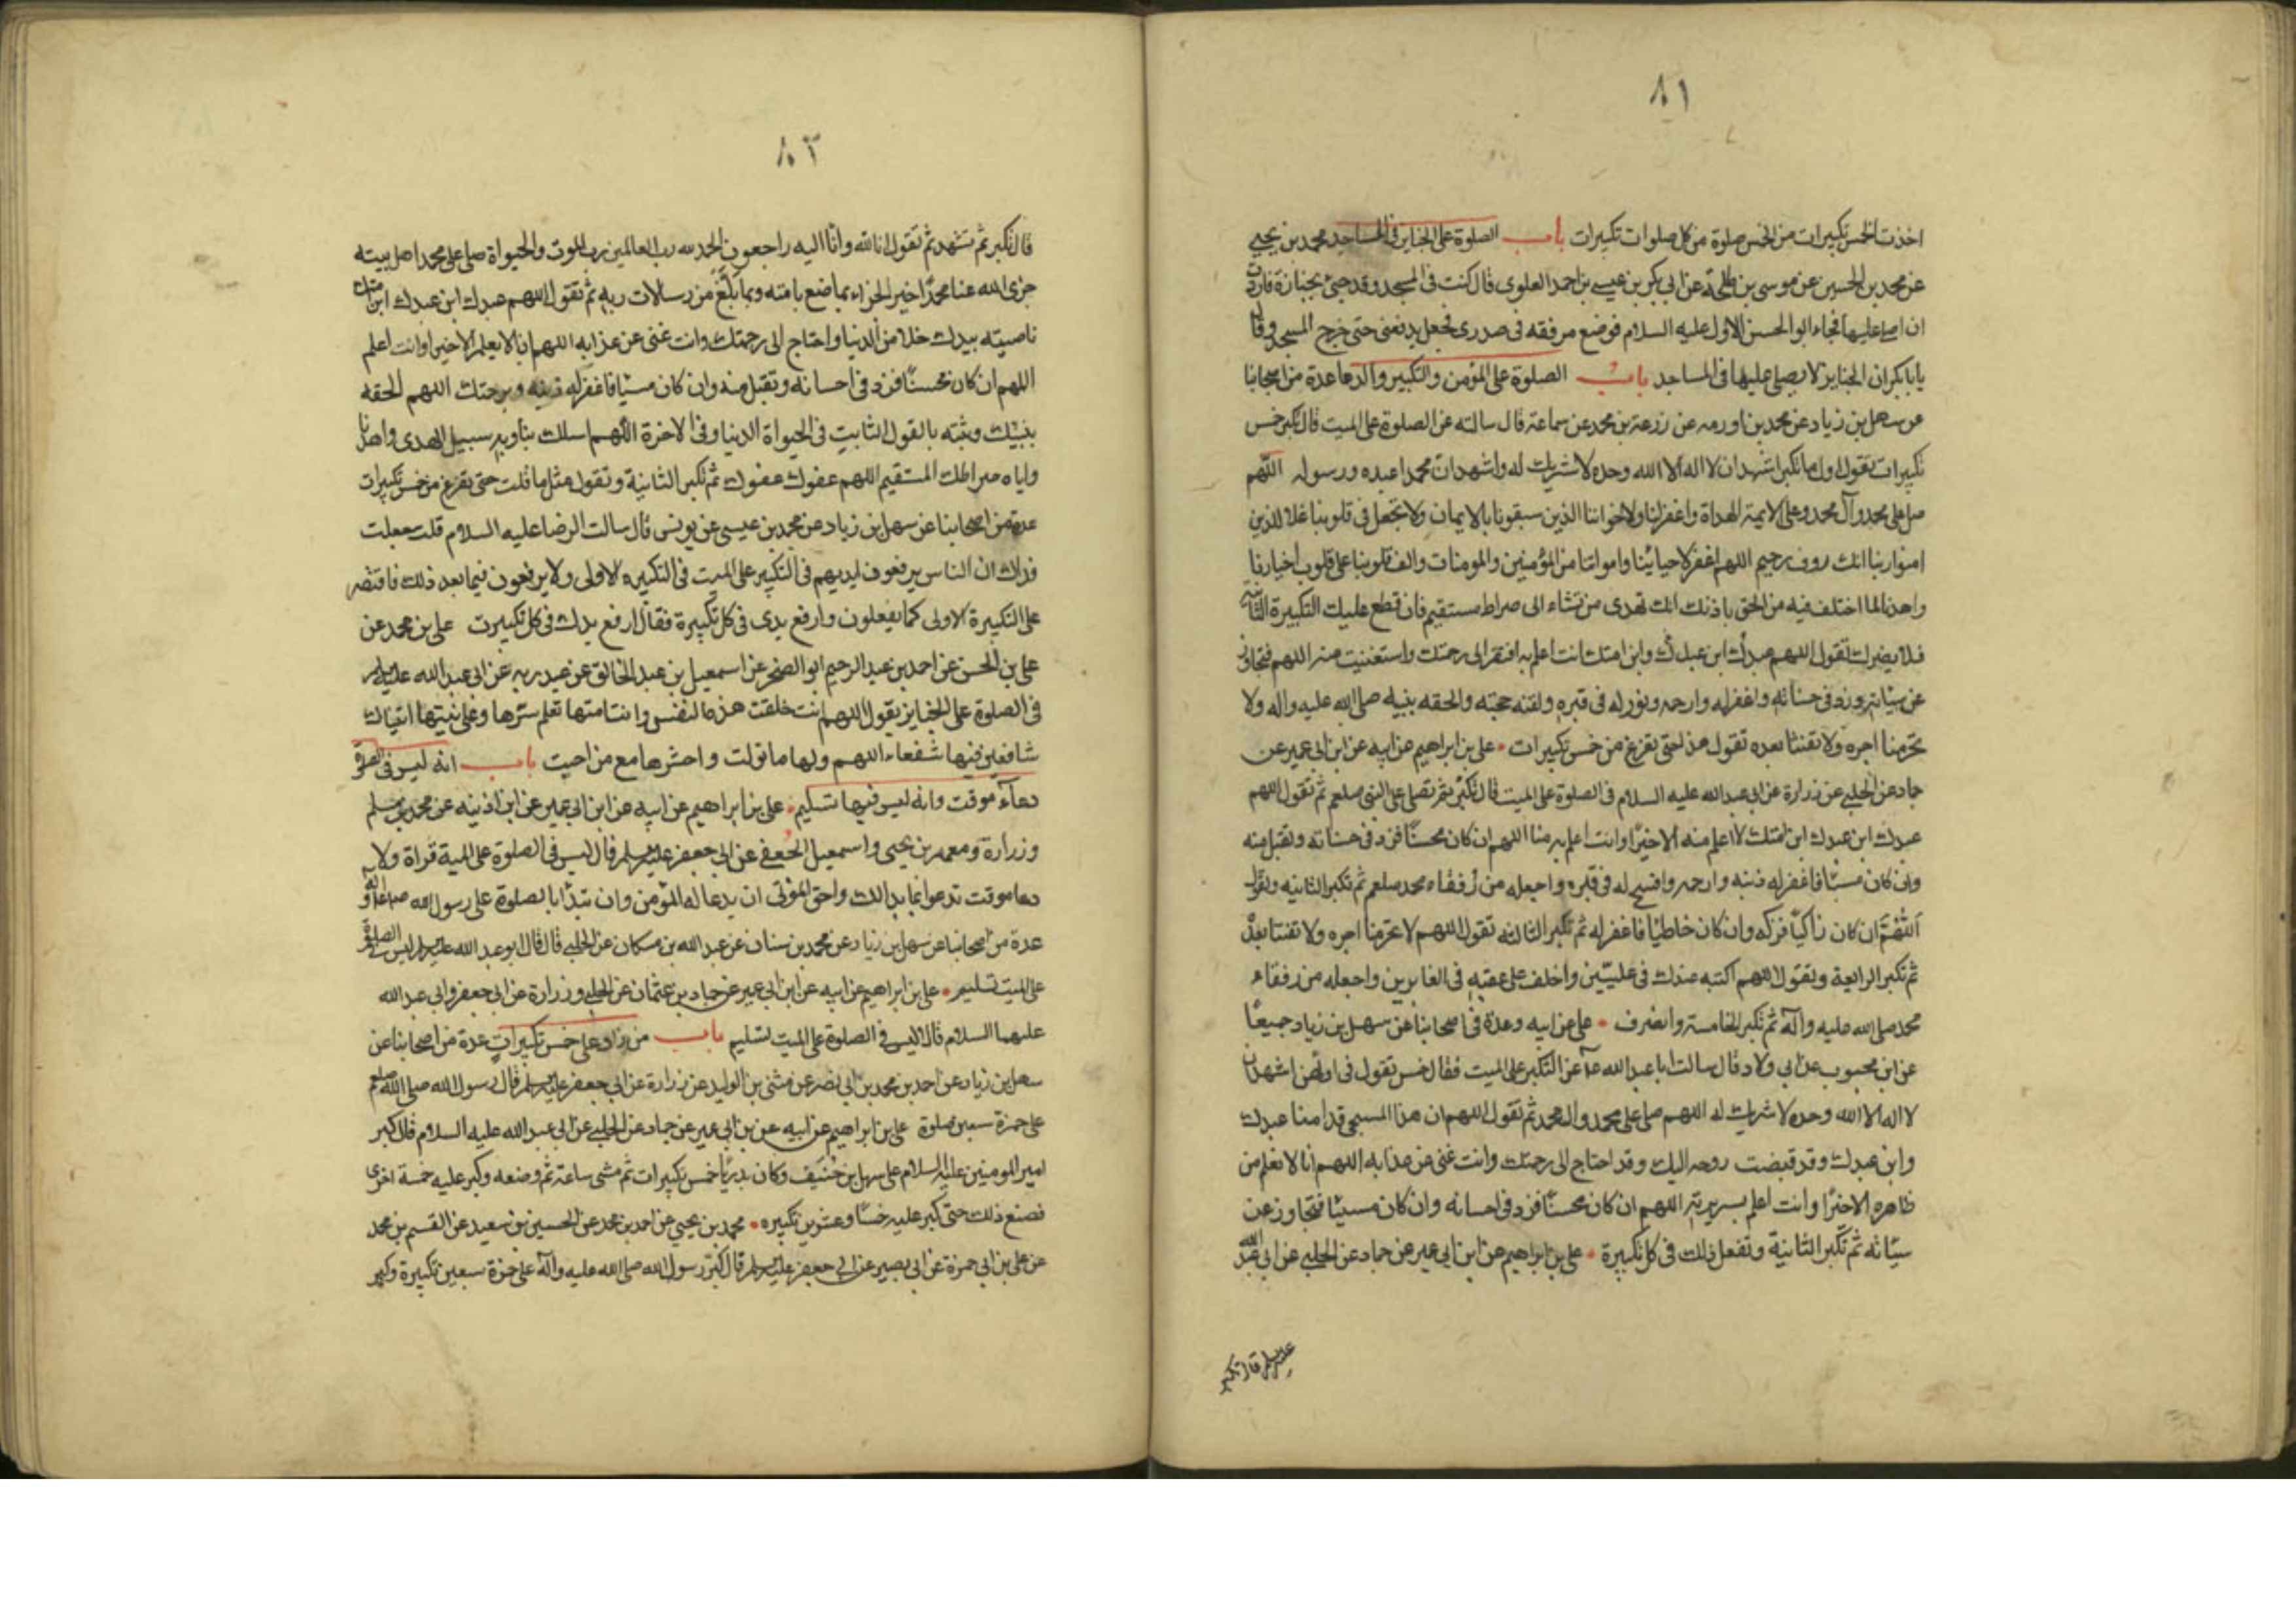 ٨١
اخذت الخمس تكبيرات من الخمس صلوة من كل صلوات تكبيرات باب الصلوة على الجنايز في المساجد محمد بن يحيى
عن محمد بن الحسين عن موسى بن طلحة عن ابي بكر بن عيسى بن احمد العلوي قال كنت في المسجد وقد جئ بجنازة فاردت
ان اصلي عليها فجاء ابو الحسن الاول عليه السلام فوضع مرفقه في صدري فجعل يدفعني حتى خرج المسجد وقال
يا با بكر ان الجنايز لا يصلى عليها في المساجد باب الصلوة على المؤمن والتكبير والدعا عدة من اصحابنا
عن سهل بن زياد عن محمد بن اورمه عن زرعة بن محمد عن سماعة قال سالته عن الصلوة على الميت قال تكبر خمس
تكبيرات تقول اول ما تكبر اشهد ان لا اله الا الله وحده لا شريك له واشهد ان محمدا عبده ورسوله اللهم
صل على محمد وآل محمد وعلى الايمة الهداة واغفر لنا ولاخواننا الذين سبقونا بالايمان ولا تجعل في قلوبنا غلا للذين
امنوا ربنا انك روف رحيم اللهم اغفر لاحيائنا وامواتنا من المؤمنين والمومنات والف قلوبنا على قلوب اخيارنا
واهدنا لما اختلف فيه من الحق باذنك انك تهدى من تشاء الى صراط مستقيم فان قطع عليك التكبيرة الثانية
فلا يضرك تقول اللهم عبدك ابن عبدك وابن امتك انت اعلم به افتقر الى رحمتك واستغنيت عنه اللهم فتجاوز
عن سيئاته وزد في حسناته واغفر له وارحمه ونور له في قبره ولقنه حجته والحقه بنبيه صلى الله عليه واله ولا
تحرمنا اجره ولا تفتنا بعده تقول هذا حتى تفرغ من خمس تكبيرات • على بن ابراهيم عن ابيه عن ابن ابي عمير عن
حماد عن الحلبي عن زرارة عن ابي عبد الله عليه السلام في الصلوة على الميت قال تكبر ثم تصلي على النبي صلعم ثم تقول اللهم
عبدك ابن عبدك ابن امتك لا اعلم منه الا خيرا وانت اعلم به منا اللهم ان كان محسنًا فزد في حسناته وتقبل منه
وان كان مسيئا فاغفر له ذنبه وارحمه وافسح له في قبره واجعله من رفقاء محمد صلعم ثم تكبر الثانيه وتقول
اللهم ان كان زاكيًا فزكه وان كان خاطئا فاغفر له ثم تكبر الثالثه تقول اللهم لا تحرمنا اجره ولا تفتنا بعده
ثم تكبر الرابعة وتقول اللهم اكتبه عندك في عليّين واخلف على عقبه في الغابرين واجعله من رفقاء
محمد صلى الله عليه وآله ثم تكبر الخامسة وانصرف • على عن ابيه وعدة من اصحابنا عن سهل بن زياد جميعًا
عن ابن محبوب عن ابي ولاد قال سالت ابا عبد الله عن التكبير على الميت فقال خمس تقول في اولهن اشهد ان
لا اله الا الله وحده لا شريك له اللهم صل على محمد وال محمد ثم تقول اللهم ان هذا المسجى قدامنا عبدك
وابن عبدك وقد قبضت روحه اليك وقد احتاج الى رحمتك وانت غنى عن عذابه اللهم انا لا نعلم من
ظاهره الا خيرًا وانت اعلم بسريرته اللهم ان كان محسنًا فزد في احسانه وان كان مسيئًا فتجاوز عن
سيئاته ثم تكبر الثانية وتفعل ذلك في كل تكبيرة • على بن ابراهيم عن ابن ابي عمير عن حماد عن الحلبي عن ابي عبد الله
قال تكبر
٨٢
قال تكبر ثم تشهد ثم تقول انا لله وانا اليه راجعون الحمد لله رب العالمين رب الموت والحيواة صل على محمد اهل بيته
جزى الله عنا محمدًا خير الجزاء بما صنع بامته وبما بلغ من رسالات ربه ثم تقول اللهم عبدك ابن عبدك ابن امتك
ناصيته بيدك خلا من الدنيا واحتاج الى رحمتك وانت غنى عن عذابه اللهم انا لا نعلم الا خيرا وانت اعلم
اللهم ان كان محسنًا فزد في احسانه وتقبل منه وان كان مسيئا فاغفر له ذنبه وبرحمتك اللهم الحقه
بنبيك وثبته بالقول الثابت في الحيواة الدنيا وفي الاخرة اللهم اسلك بنا وبه سبيل الهدى واهدنا
واياه صراطك المستقيم اللهم عفوك عفوك ثم تكبر الثانية وتقول مثل ما قلت حتى تفرغ من خمس تكبيرات
عدة من اصحابنا عن سهل بن زياد عن محمد بن عيسى عن يونس قال سالت الرضا عليه السلام قلت جعلت
فداك ان الناس يرفعون ايديهم في التكبير على الميت في التكبيره الاولى ولا يرفعون فيما بعد ذلك فاقتصر
على التكبيرة الاولى كما يفعلون وارفع يدى في كل تكبيرة فقال ارفع يدك في كل تكبيرت على بن محمد عن
على بن الحسن عن احمد بن عبد الرحيم ابو الصخر عن اسمعيل بن عبد الخالق عن عبد ربه عن ابي عبد الله عليه السلام
في الصلوة على الجنايز تقول اللهم انت خلقت هذه النفس وانت امتها تعلم سرّها وعلانيتها اتيناك
شافعين فيها شفعاء اللهم ولها ما تولت واحشرها مع من احبت باب انه ليس في الصلوة
دعاء موقت وانه ليس فيها تسليم • على بن ابراهيم عن ابيه عن ابن ابي عمير عن ابن اذينه عن محمد بن مسلم
وزرارة ومعمر بن يحيى واسمعيل الجعفي عن ابي جعفر عليه السلام قال ليس في الصلوة على الميت قراة ولا
دعا موقت تدعوا بما بدا لك واحق الموتى ان يدعا له المؤمن وان تبدأ بالصلوة على رسول الله
عدة من اصحابنا عن سهل بن زياد عن محمد بن سنان عن عبد الله بن مسكان عن الحلبي قال قال ابو عبد الله عليه السلام ليس في الصلوة
على الميت تسليم • على بن ابراهيم عن ابيه عن ابن ابي عمير عن حماد بن عثمان عن الحلبي وزرارة عن ابي جعفر وابي عبد الله
عليهما السلام قالا ليس في الصلوة على الميت تسليم باب من زاد على خمس تكبيرات عدة من اصحابنا عن
سهل بن زياد عن احمد بن محمد بن ابي نصر عن مثنى بن الوليد عن زرارة عن ابي جعفر عليه السلام قال رسول الله صلى الله
على حمزة سبعين صلوة على بن ابراهيم عن ابيه عن بن ابي عمير عن حماد عن الحلبي عن ابي عبد الله عليه السلام قال كبر
امير المومنين عليه السلام على سهل بن حنيف وكان بدريًا خمس تكبيرات ثم مشى ساعة ثم وضعه وكبر عليه خمسة اخرى
فصنع ذلك حتى كبر عليه خمسًا وعشرين تكبيره • محمد بن يحيى عن احمد بن محمد عن الحسين بن سعيد عن القسم بن محمد
عن على بن ابي حمزة عن ابي بصير عن ابي جعفر عليه السلام قال كبّر رسول الله صلى الله عليه وآله على حمزة سبعين تكبيرة وكبر